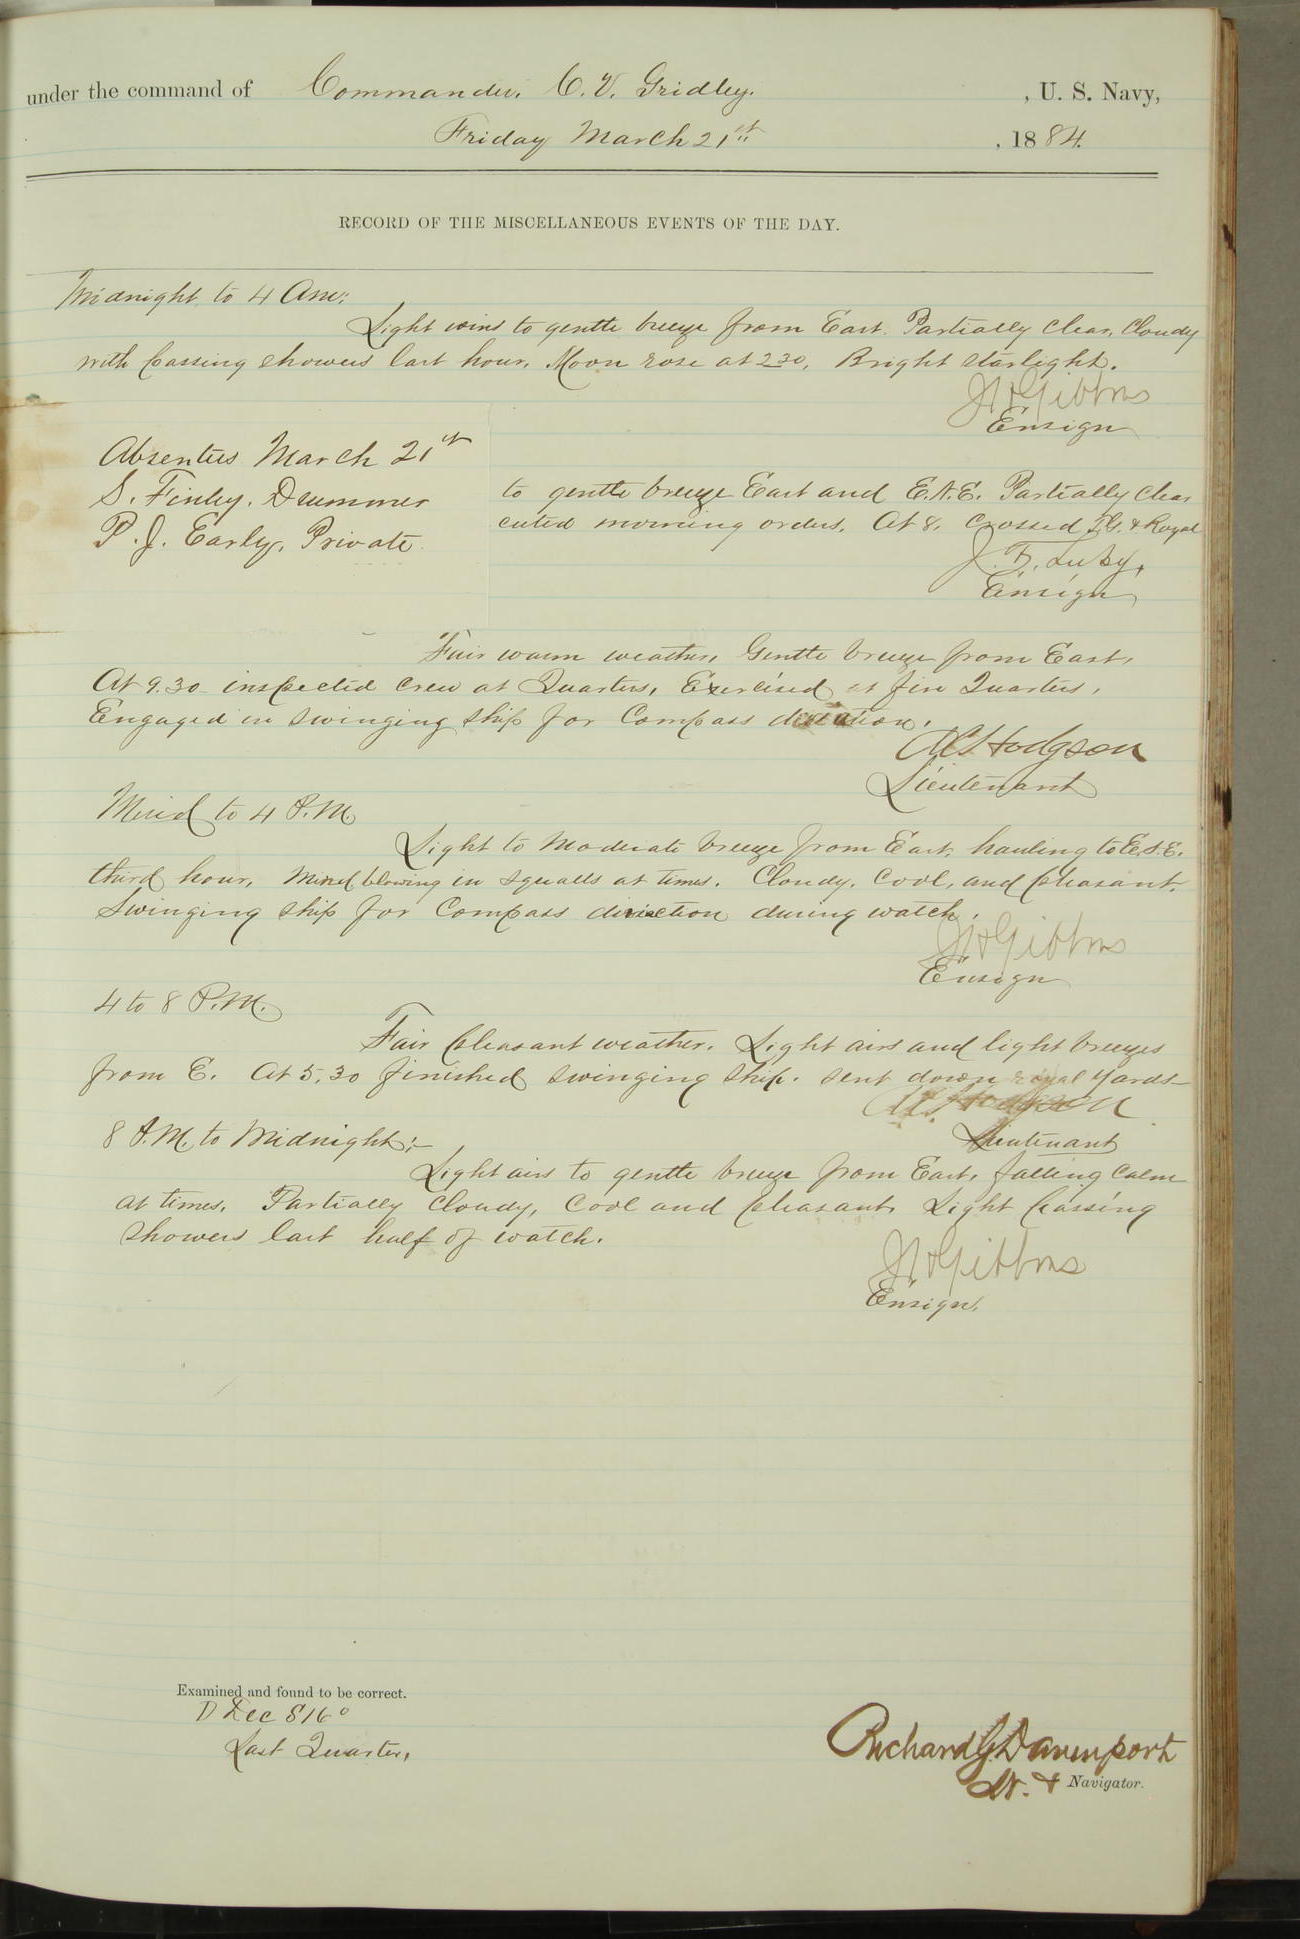 under the command of Commander. C. V. Gridley. , U. S. Navy,
Friday March 21st , 1884.
RECORD OF THE MISCELLANEOUS EVENTS OF THE DAY.
Midnight to 4 Am:
Light wins to gentle breeze from East. Partially clear, Cloudy
with passing showers last hour. Moon rose at 2 30. Bright starlight.
Gibbons
Ensign
Absentees March 21st
S. Finley. Drummer
P. J. Early, Private.
to gentle breeze East and E.N.E. Partially clear
cuted morning orders. At 8. crossed T.G. & Royal
J. F. Luby.
Ensign
Fair warm weather. Gentle breeze from East.
At 9.30 inspected crew at Quarters, Exercised at fire Quarters.
Engaged in swinging ship for Compass deviation.
A C Hodgson
Lieutenant
Merid to 4 P.M.
Light to Moderate breeze from East. hauling to E.S.E.
third hour. Wind blowing in squalls at times. Cloudy. Cool, and pleasant.
Swinging ship for Compass during watch.
Gibbons
Ensign
4 to 8 P.M.
Fair pleasant weather. Light airs and light breezes
from E. At 5.30 finished swinging ship. Sent down royal yards
A C Hodgson
Lieutenant
8 P.M. to Midnight:-
Light airs to gentle breeze from East, falling calm
at times. Partially cloudy, Cool and pleasant. Light passing
showers last half of watch.
Gibbons
Ensign.
Examined and found to be correct.
D Dec S 16°
Last Quarter.
Richard G Davenport
Lt. & Navigator.